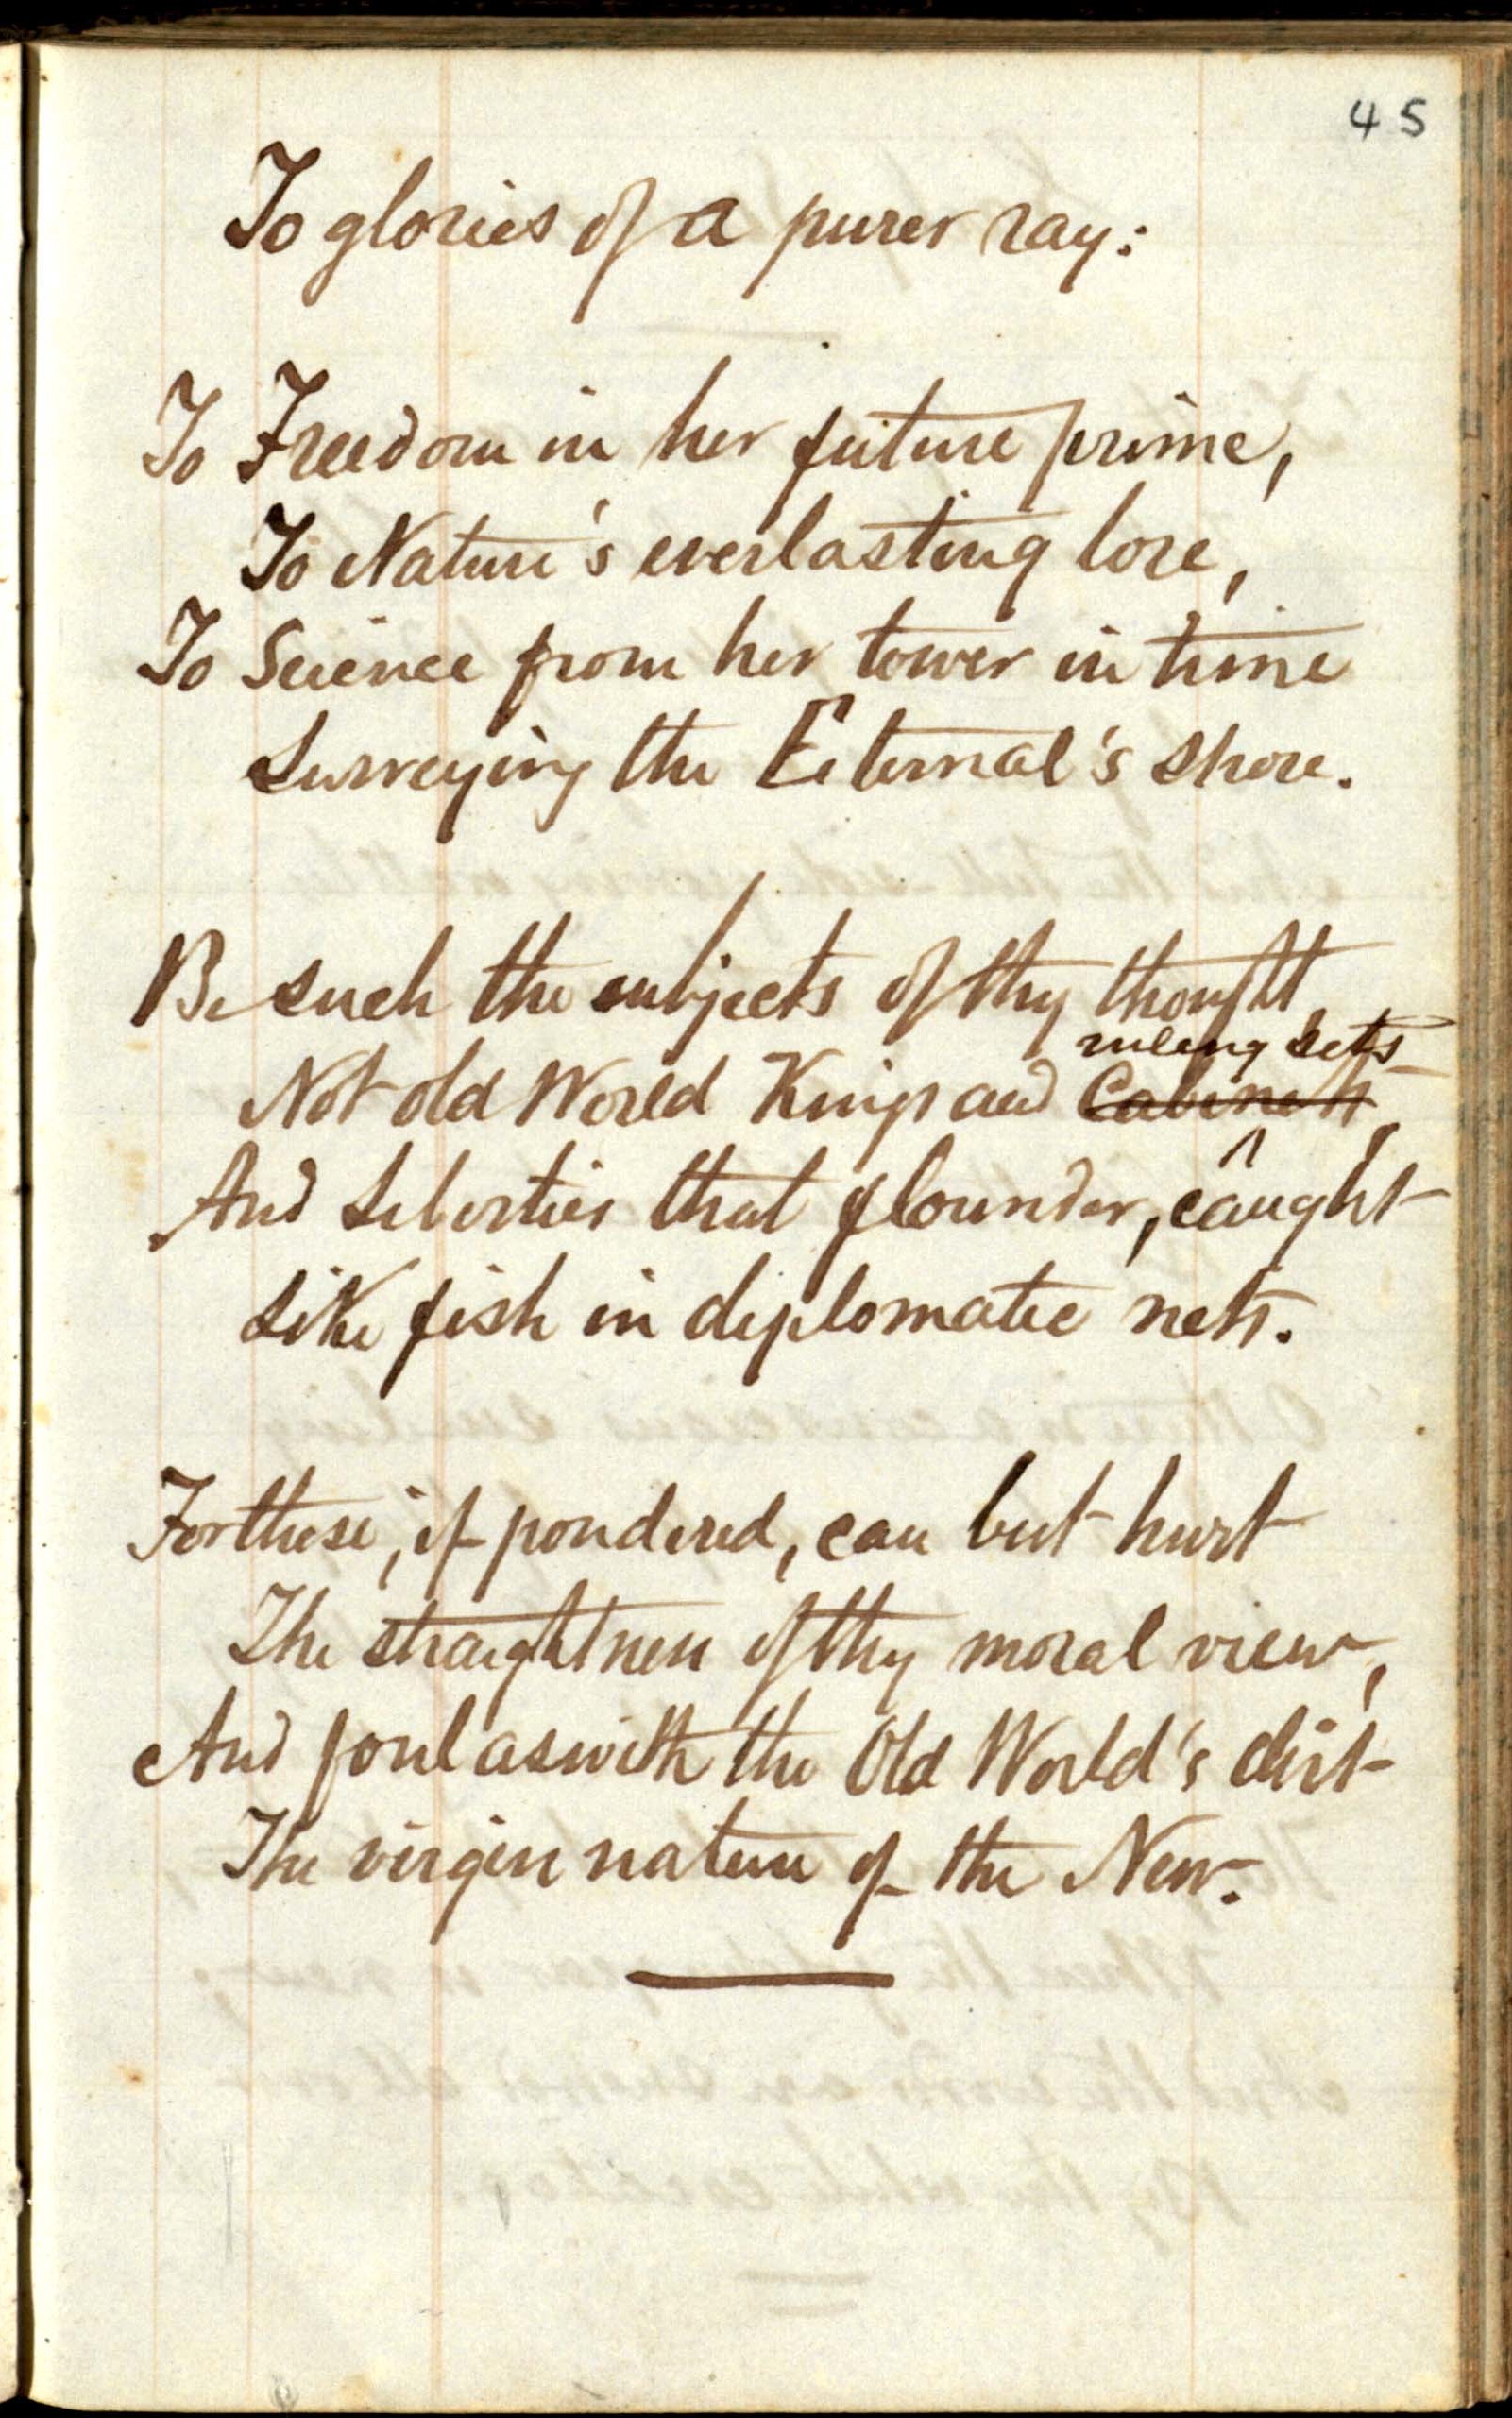 45
To glories of a purer ray:
To Freedom in her future prime,
To Nature's everlasting lore,
To Science from her tower in time
Surveying the Eternal's shore.
Be such the subjects of thy thought,
ruling sets
Not old World Kings and Cabinets,
And Liberties that flounder, caught
Like fish in diplomatic nets.
For these, if pondered, can but hurt
The straightness of thy moral view,
And foul as with the Old World's dirt
The virgin nature of the New.